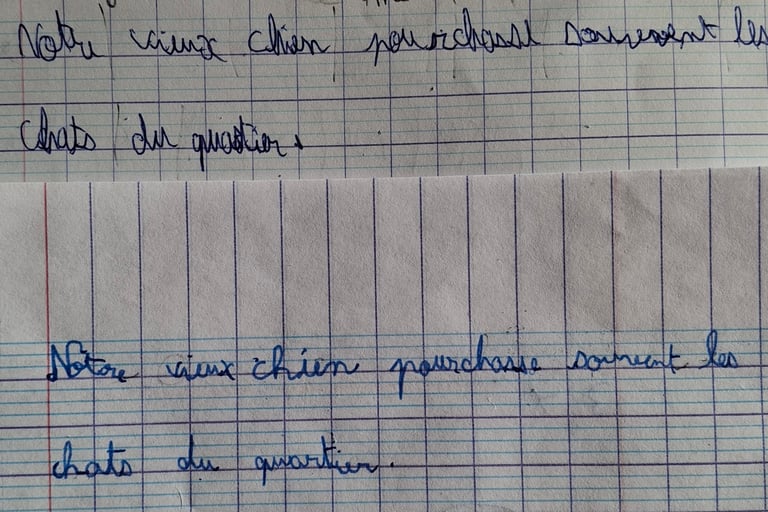 Notre vieux chien pourchasse souvent les
chats du quartier.
Notre vieux chien pourchasse souvent les
chats du quartier.